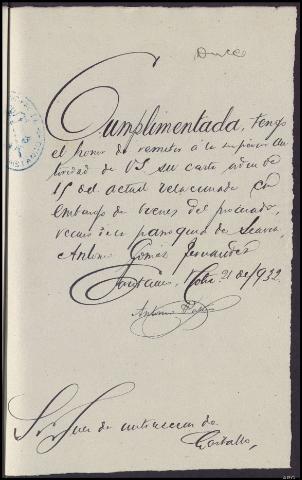 Cumplimentada, tengo
el honor de remeter á la superior au
toridad de VS su carta orden de
15 del actual relacionada con
embargo de bienes del procesado,
vecino de la parroquia de
Antonio Gomez Fernandez
21 de 1932
Antonio
Sr Juez de instruccion de
Carballo,